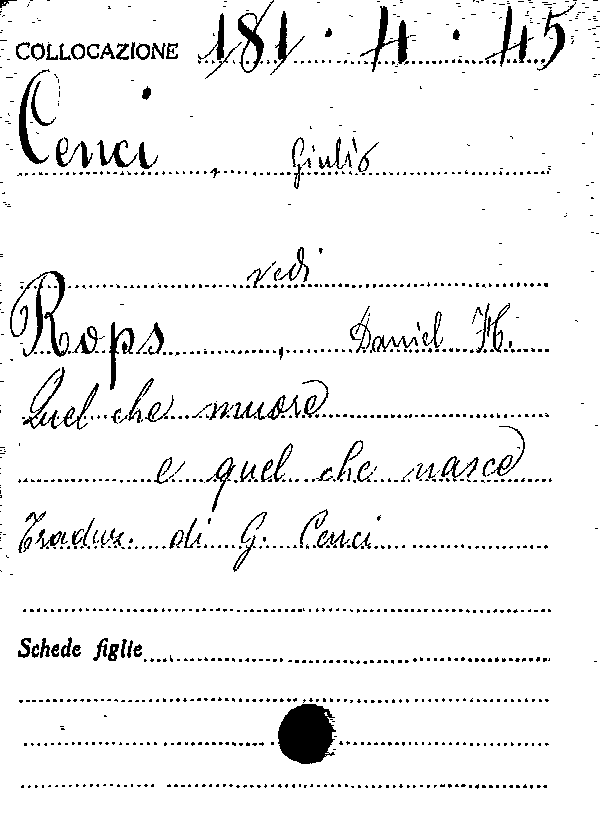 COLLOCAZIONE 181.4.45
Cenci, Giulio
vedi
Rops, Daniel H.
Quel che muore
e quel che nasce
Traduz. di G. Cenci
Schede figlie